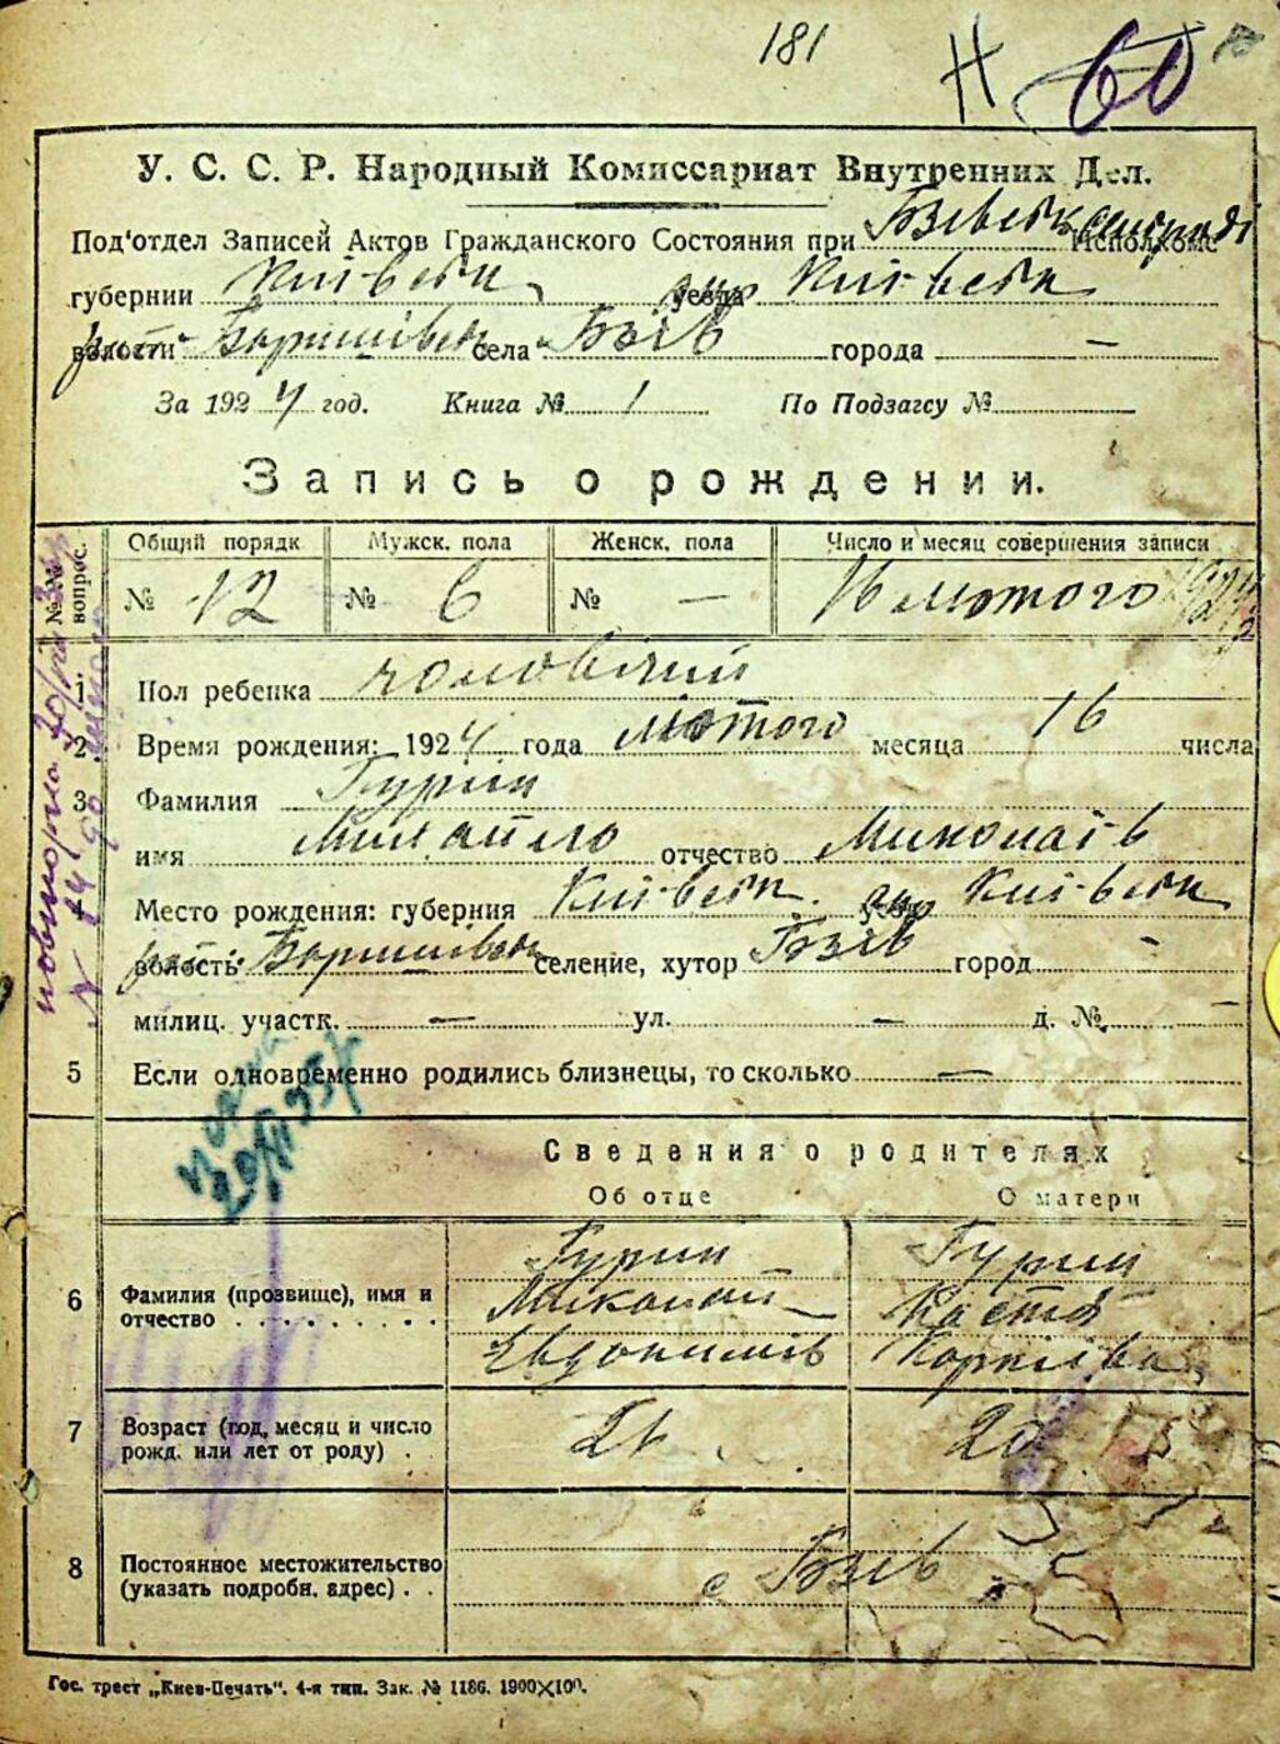 181 Н 60
У. С. С. Р. Народный Комиссариат Внутренних Дел.
Под'отдел Записей Актов Гражданского Состояния при Бзівськ. сільраді Исполкоме
губернии Київськ. уезда окр Київськ
волости рай- Боришівськ села Бзів города —
За 1924 год. Книга № 1 По Подзагсу №
Запись о рождении.
№№ вопрос. Общий порядк Мужск. пола Женск. пола Число и месяц совершения записи
№ 12 № 6 № — 16 лютого
1 Пол ребенка чоловічий
2 Время рождения: 1924 года лютого месяца 16 числа
3 Фамилия Гурин
имя Михайло отчество Миколаів
Место рождения: губерния Київськ. окр Київськ
волость рай. Боришівськ селение, хутор Бзів город —
милиц. участк. — ул. — д. № —
5 Если одновременно родились близнецы, то сколько —
Сведения о родителях
Об отце О матери
Гурин Гурин
6 Фамилия (прозвище), имя и отчество Миколай Настя
Евдокимів Корніівна
7 Возраст (год, месяц и число рожд. или лет от роду) 21 20
8 Постоянное местожительство (указать подробн. адрес) с Бзів
повторно
Гос. трест „Киев-Печать“. 4-я тип. Зак. № 1186. 1900×100.